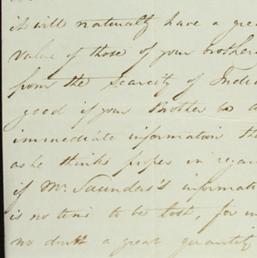 it will naturally have a grea
value of those of your brother
from the Scarcity of Indi
good if your Brother to a
immediate information th
as he thinks proper in regar
if Mr. Saunders's informat
is no time to be lost, for
no doubt a great quantity